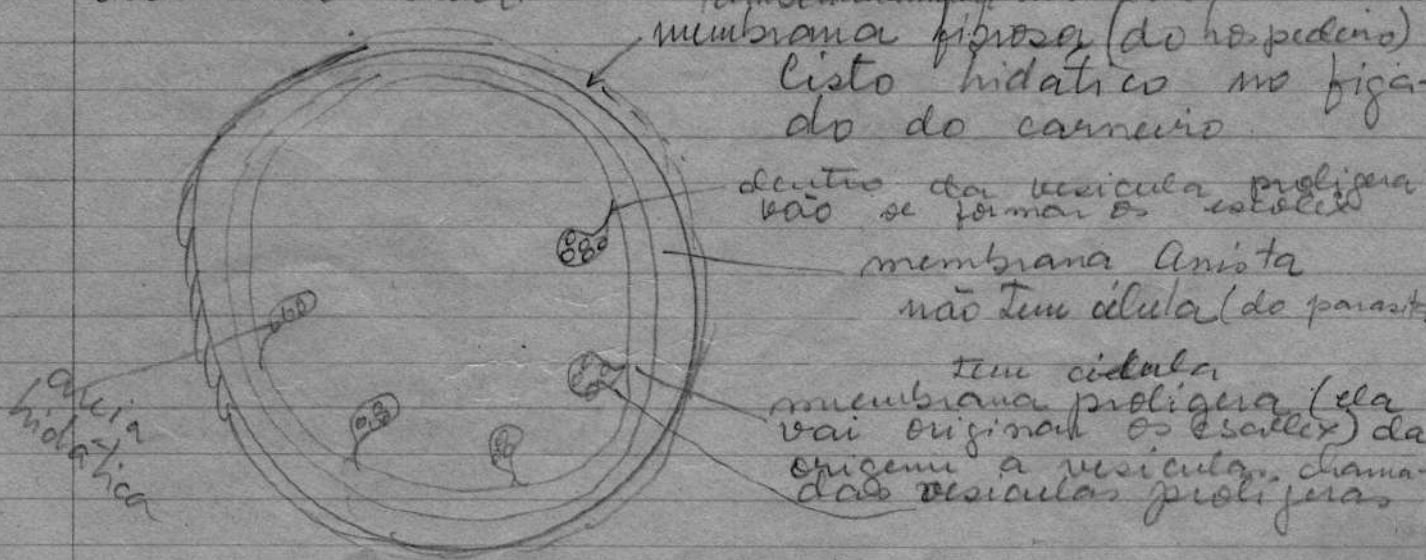 membrana fibrosa (do hospedeiro)
Cisto hidático no fíga-
do do carneiro
dentro da vesicula proligera
vão se formar os escolex
membrana Anista
não tem célula (do parasit
tem célula
membrana proligera (ela
vai originar os escolex) da
origem a vesicula, chama-
das vesiculas proligeras
areia
hidática